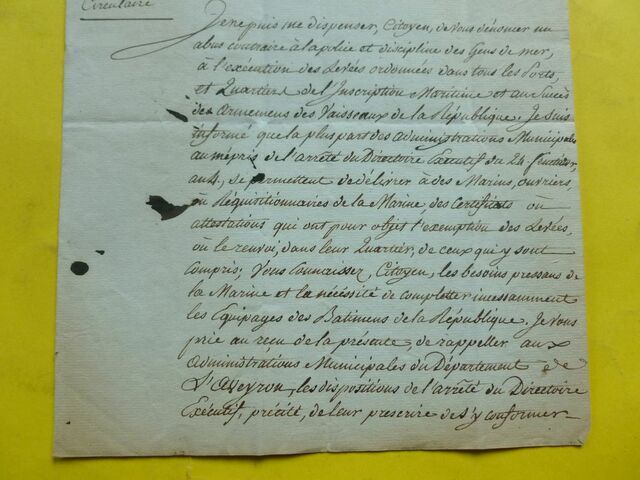 Circulaire
Je ne puis me dispenser, Citoyen, de vous dénoncer un
abus contraire à la police et discipline des Gens de mer,
à l'exécution des Levées ordonnées dans tous les Ports
et Quartiers de l'Inscription Maritime et au Succès
des armemens des Vaisseaux de la République. Je suis
informé que la plus part des administrations Municipales
au mépris de l'arrêté du Directoire Exécutif du 24 fructidor
an 4, se permettent de délivrer à des Marins, ouvriers,
ou Réquisitionnaires de la Marine, des Certificats ou
attestations qui ont pour objet l'exemption des Levées,
ou le renvoi, dans leur Quartier, de ceux qui y sont
compris; Vous connaissez, Citoyen, les besoins pressans de
la Marine et la nécéssité de completter incessamment
les Equipages des Batimens de la République. Je vous
prie au reçu de la présente, de rappeller aux
administrations Municipales du Département de
L'aveyron, les dispositions de l'arrêté du Directoire
Exécutif, précité, de leur prescrire de s'y conformer